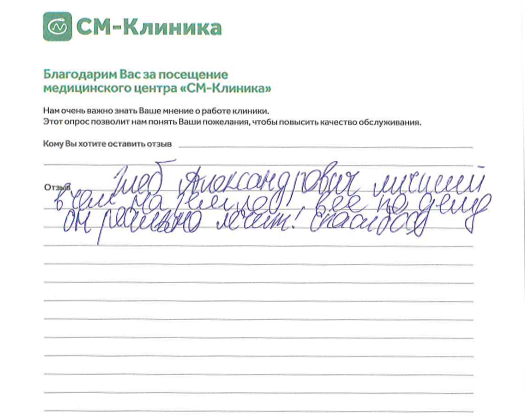 СМ-Клиника
Благодарим Вас за посещение
медицинского центра «СМ-Клиника»
Нам очень важно знать Ваше мнение о работе клиники.
Этот опрос позволит нам понять Ваши пожелания, чтобы повысить качество обслуживания.
Кому Вы хотите оставить отзыв
Глеб Александрович лучший
Отзыв
в чем на все по делу
он реально лечит! спасибо